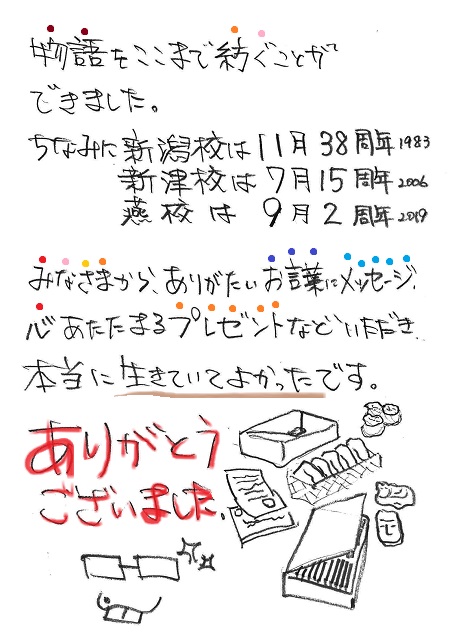 物語をここまで紡ぐことが
できました。
ちなみに新潟校は11月38周年1983
新津校は7月15周年2006
燕校は9月2周年2019
みなさまから、ありがたいお言葉にメッセージ、
心あたたまるプレゼントなどいただき
本当に生きていてよかったです。
ありがとう
ございました。